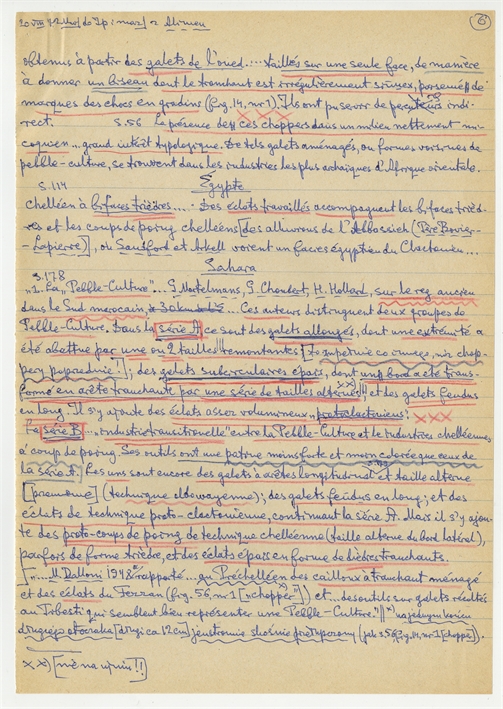 6
obtenus à partir des galets de l'oued.... taillés sur une seule face, de manière
à donner un biseau dont le tranchant est irrégulièrement sinueux, parsemé de
marques des chocs en gradins (fig. 14, nr 1). Ils ont pu servir de percuteurs indi-
rect.
S. 56 La présence de ces choppers dans un milieu nettement mi-
coquien... grand intérêt typologique. De tels galets aménagés, ou formes voisines de
pebble-culture, se trouvent dans les industries les plus archaïques d'Afrique orientale.
S. 114 Égypte
chelléen à bifaces trièdres..... Des éclats travaillés accompagnent les bifaces trièd-
res et les coups de poing chelléens [des alluvions de l'Abbassieh (Père Bovier-
-Lapierre)], où Sandford et Arkell voient un faciès égyptien du Clactonien...
Sahara
S. 178
"1. La "Pebble-Culture"... G. Mortelmans, G. Choubert, H. Hollard, sur le reg ancien
dans le Sud marocain, ... Ces auteurs distinguent deux groupes de
Pebble-Culture. Dans la série A ce sont des galets allongés, dont une extrémité a
été abattue par une ou 2 tailles remontantes [to
]; des galets subcirculaires épais, dont un bord a été trans-
formé en arête tranchante par une série de tailles alternes xx) et des galets fendus
en long. Il s'y ajoute des éclats assez volumineux protoclactoniens. xxx
La série B... "industrie transitionelle" entre la Pebble-Culture et les industries chelléennes
à coup de poing. Ses outils ont une patine moins forte et moin colorée que ceux de
la série A. Les uns sont encore des galets à arêtes longitudinal et taille alterne
(technique oldowayenne); des galets fendus en long; et des
éclats de technique proto-clactonienne, continuant la série A. Mais il s'y ajou-
te des proto-coups de poing de technique chelléenne (taille alterne du bord latéral),
parfois de forme trièdre, et des éclats épais en forme de bièdres tranchants.
["... M. Dalloni 1948 rapporte... au Préchelléen des cailloux à tranchant ménagé
et des éclats du Fezzan (fig. 56, nr 1 ["chopper"]) et... des outils sur galets récoltés
au Tibesti qui semblent bien représenter une Pebble-Culture." x) na jednym końcu
drugiego otoczaka [długi ca. 12 cm] jeu (jak s. 56, fig. 14, nr 1 [chopper]).
xx)